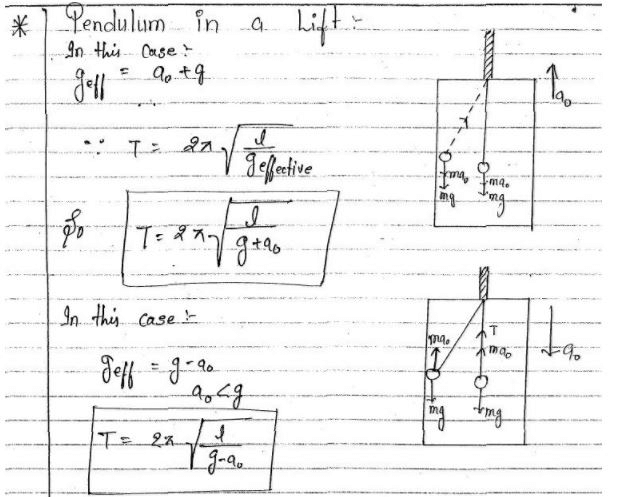 * Pendulum in a Lift :-
In this Case :-
g_eff = a₀ + g
∵ T = 2π √(l / g_effective)
So T = 2π √(l / g + a₀)
a₀
ma₀
mg
ma₀
mg
In this case :-
g_eff = g - a₀
a₀ < g
T = 2π √(l / g - a₀)
ma₀
T
ma₀
a₀
mg
mg